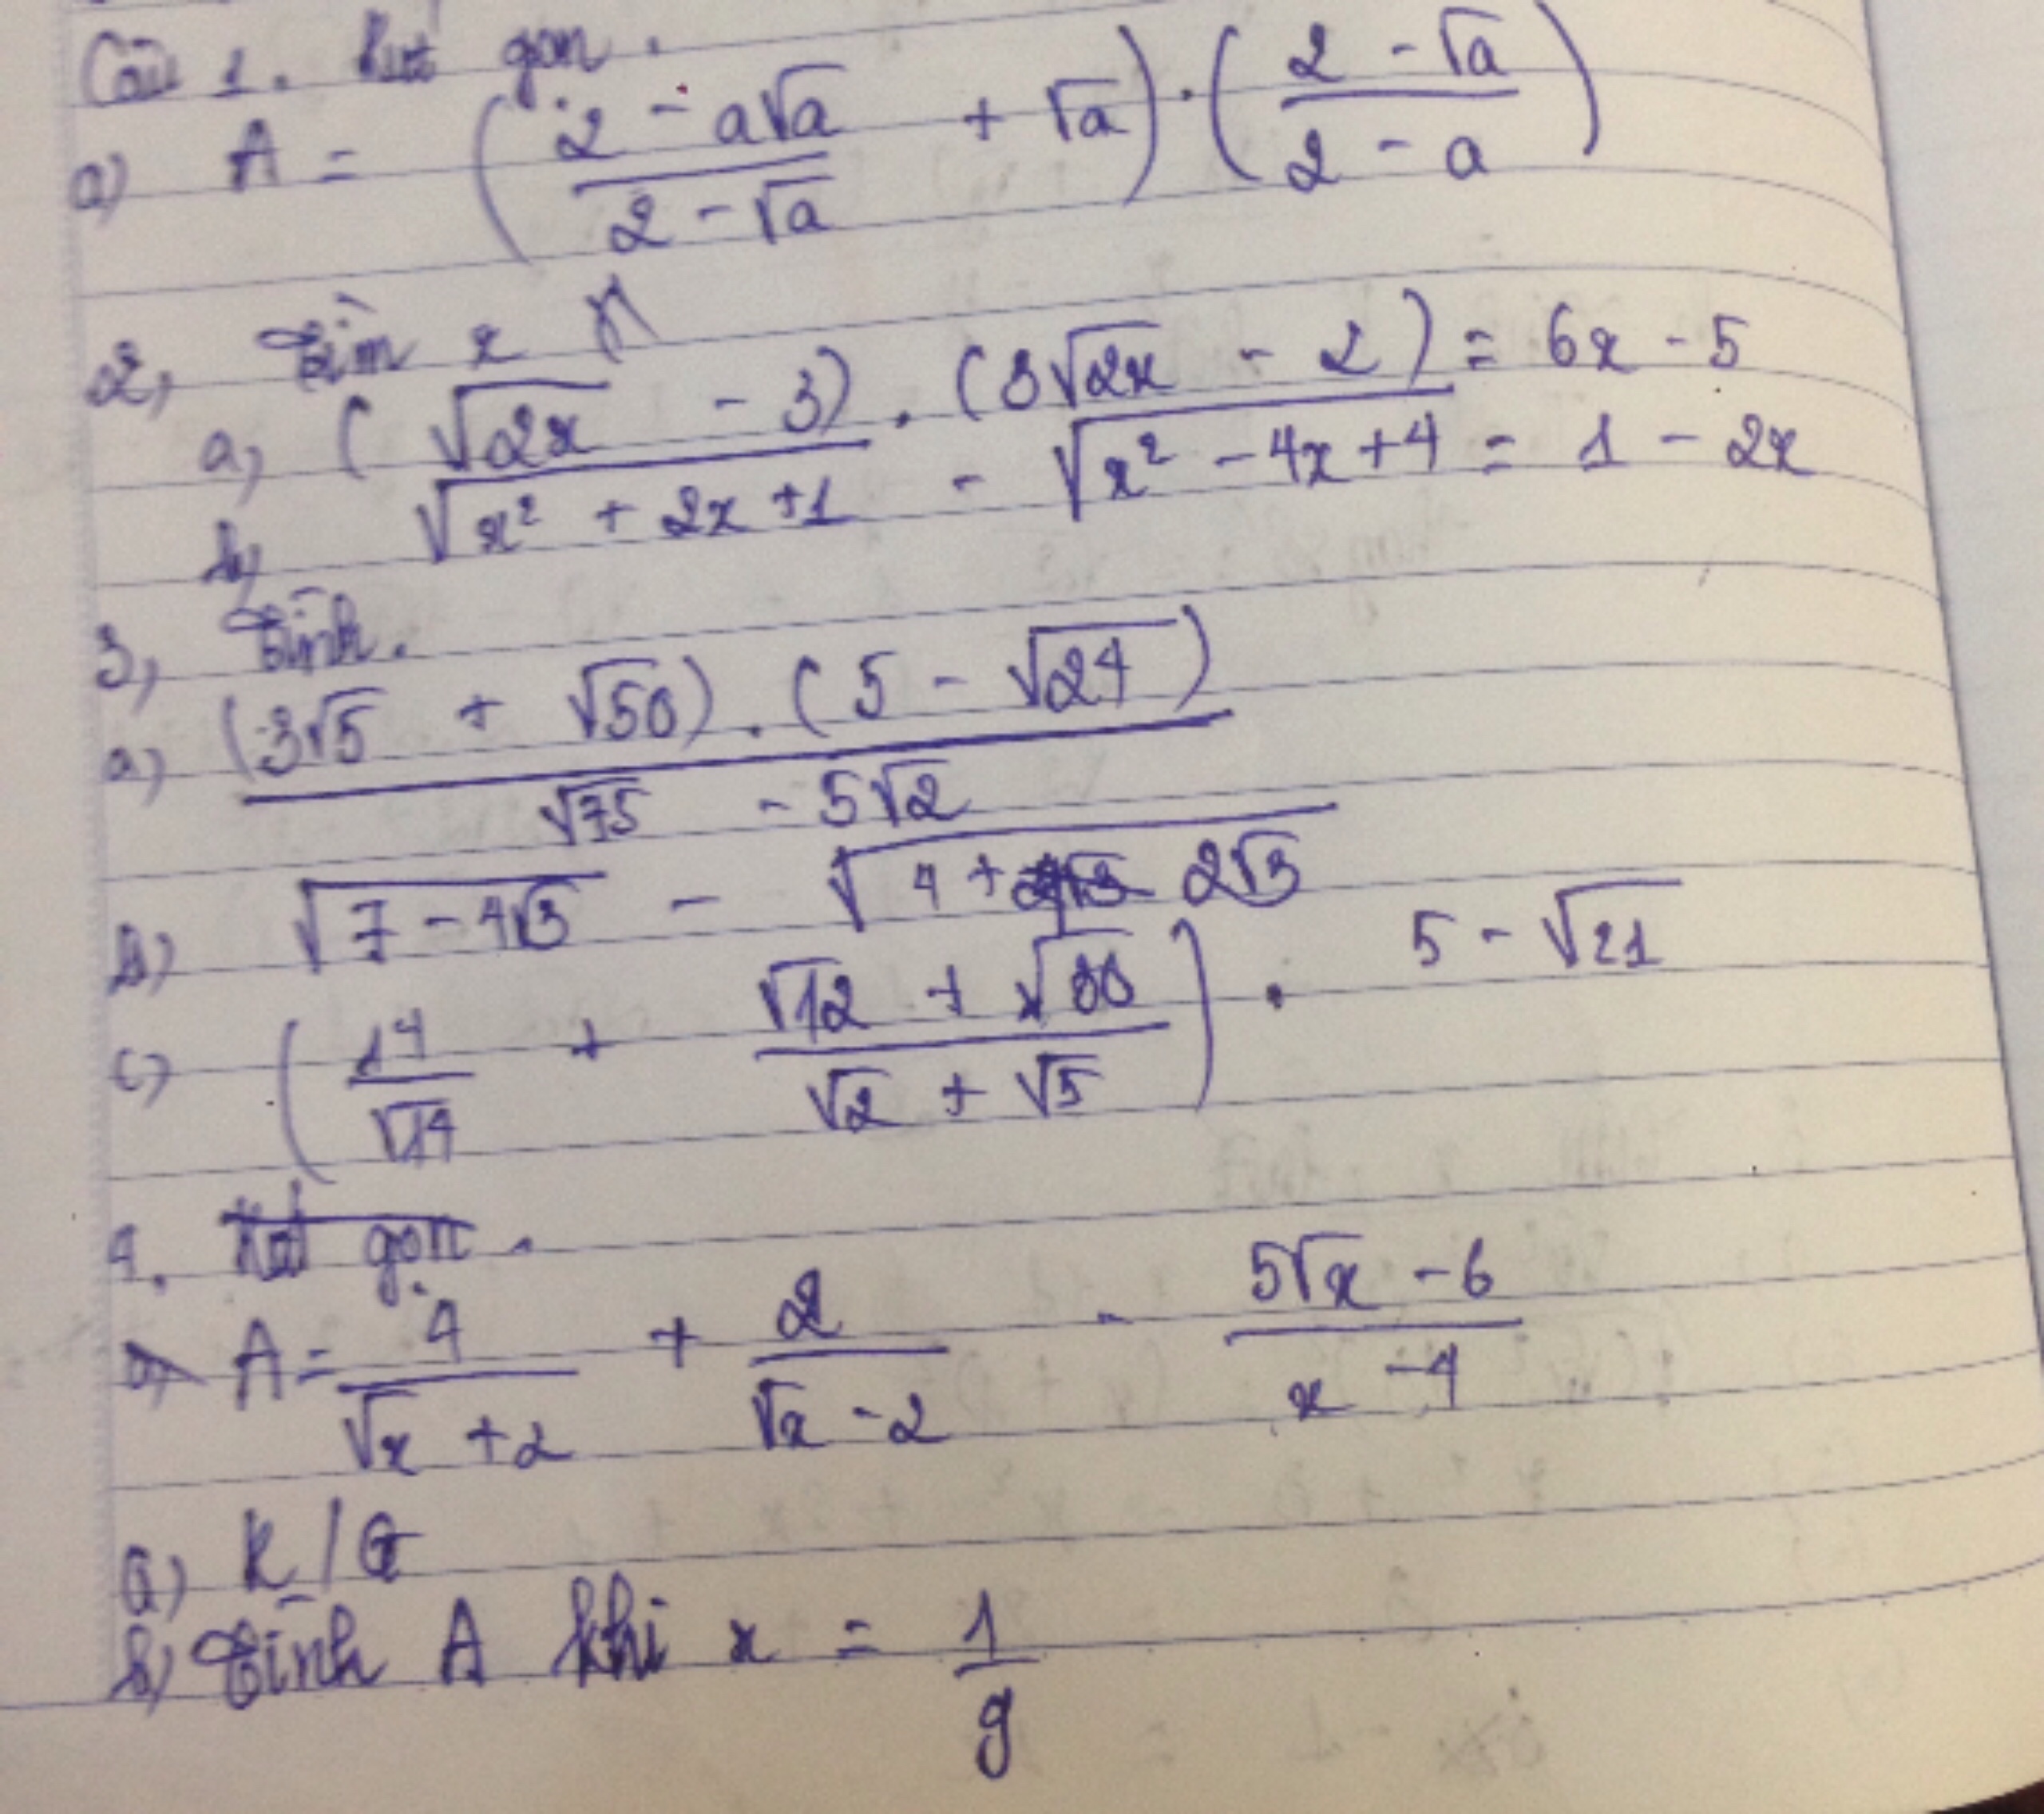 Câu 1. Rút gọn.
a) A = ( (2 - a√a)/(2 - √a) + √a ) . ( (2 - √a)/(2 - a) )
2, Tìm x
a, (√2x - 3) . (3√2x - 2) = 6x - 5
b, √(x² + 2x + 1) - √(x² - 4x + 4) = 1 - 2x
3, Tính.
a) ((3√5 + √50) . (5 - √24))/(√75 - 5√2)
b) √(7 - 4√3) - √(4 + 2√3)
c) ( 14/√14 + (√12 + √30)/(√2 + √5) ) . 5 - √21
4. Rút gọn.
A = 4/(√x + 2) + 2/(√x - 2) - (5√x - 6)/(x - 4)
a) R/G
b) Tính A khi x = 1/9